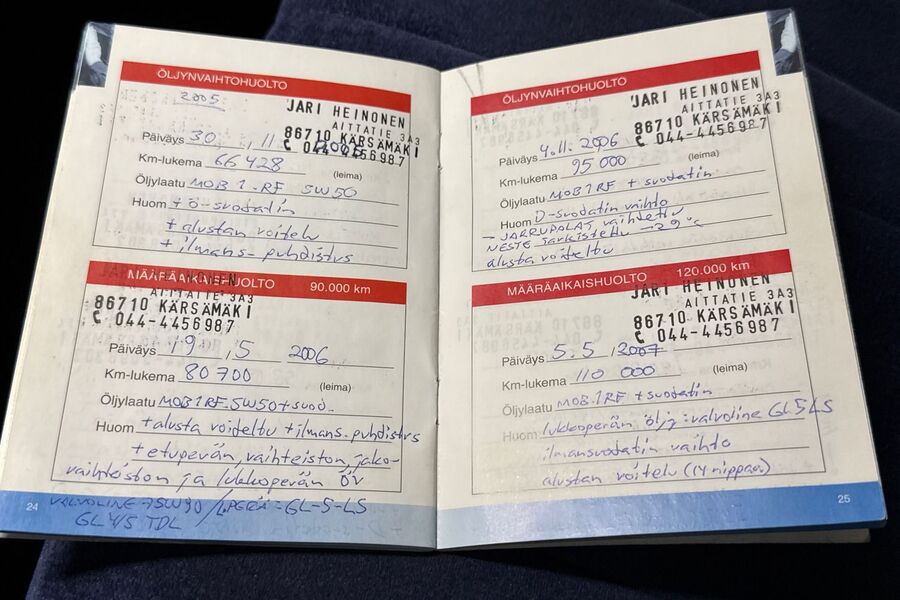 ÖLJYNVAIHTOHUOLTO
2005
JARI HEINONEN
AITTATIE 3A3
86710 KÄRSÄMÄKI
044-4456987
Päiväys 30 . 11
Km-lukema 66 428 (leima)
Öljylaatu MOB 1 - RF 5W50
Huom + ö-suodatin
+ alustan voitelu
+ ilmans. puhdistus
MÄÄRÄAIKAISHUOLTO 90.000 km
AITTATIE 3A3
86710 KÄRSÄMÄKI
044-4456987
Päiväys 19 . 5 2006
Km-lukema 80 700 (leima)
Öljylaatu MOB 1 RF. 5W50 + suod.
Huom + alusta voideltu + ilmans. puhdistus
+ etuperän, vaihteiston, jako-
vaihteiston ja lukkoperän öv
VALVOLINE 75W90 / LPERÄ = GL-5-LS
GL 4/5 TDL
24
ÖLJYNVAIHTOHUOLTO
JARI HEINONEN
AITTATIE 3A3
86710 KÄRSÄMÄKI
044-4456987
Päiväys 4.11. 2006
Km-lukema 95 000 (leima)
Öljylaatu MOB 1 RF + suodatin
Huom D-suodatin vaihto
- JARRUPALAT vaihdettu
NESTE tarkistettu -29°C
alusta voideltu
MÄÄRÄAIKAISHUOLTO 120.000 km
JARI HEINONEN
AITTATIE 3A3
86710 KÄRSÄMÄKI
044-4456987
Päiväys 5.5 . 2007
Km-lukema 110 000 (leima)
Öljylaatu MOB. 1 RF + suodatin
Huom lukkoperän öljy: valvoline GL5LS
ilmansuodatin vaihto
alustan voitelu (14 nippaa)
25